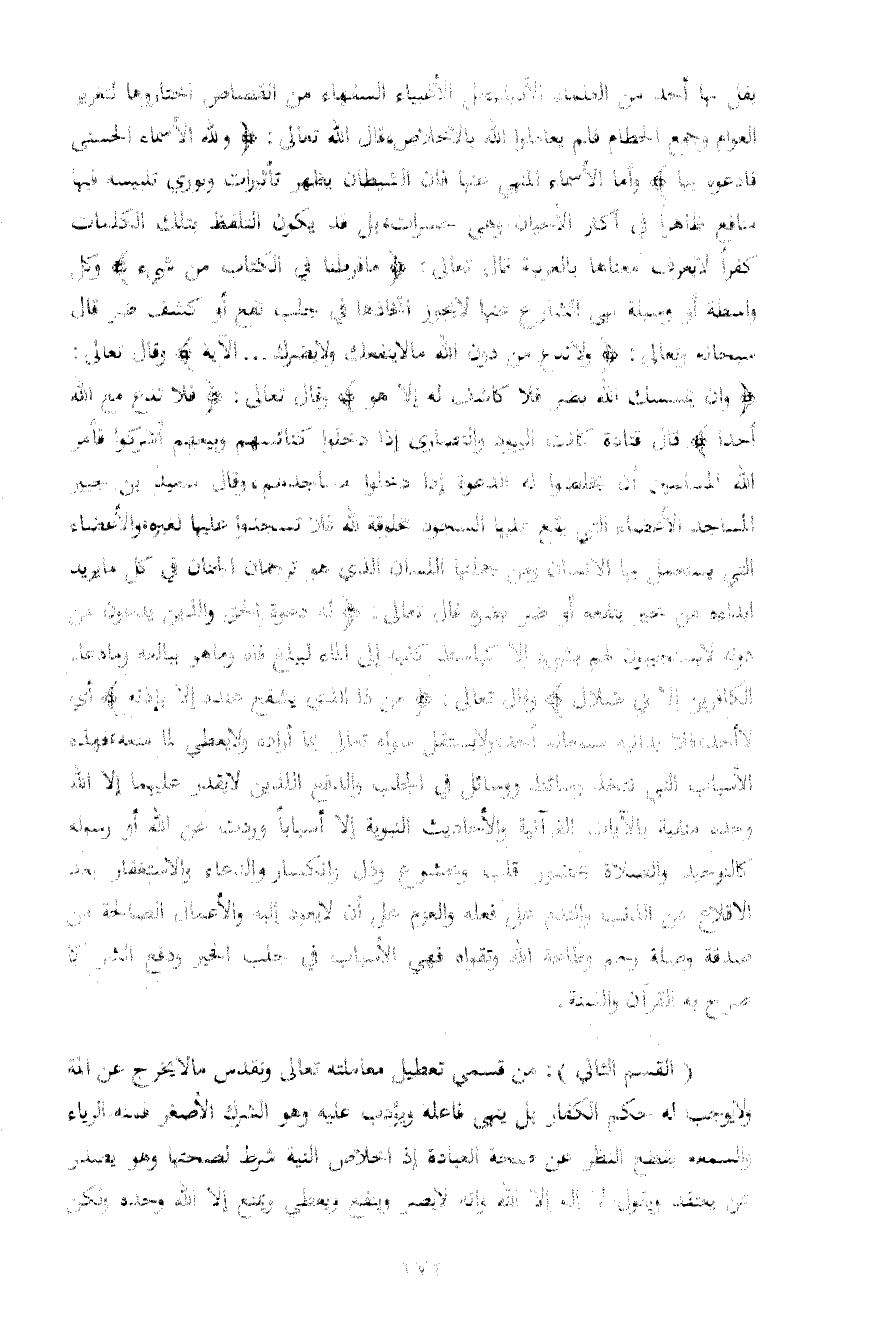 يقل بها أحد من العلماء بل الأغبياء السفهاء من القصاص اختاروها لتغرير
العوام وجمع الحطام فلم يعاملوا الله بالاخلاص، قال الله تعالى : ﴿ ولله الأسماء الحسنى
فادعوه بها ﴾ وأما الأسماء المنهي عنها فان الشيطان يظهر تأثيرات ويوري تلبيسه فيها
منافع ظاهراً في أكثر الأحيان وهي خسرات، بل قد يكون التلفظ بتلك الكلمات
كفراً لايعرف معناها بالعربية قال تعالى : ﴿ مافرطنا في الكتاب من شيء ﴾ وكل
واسطة أو وسيلة نهى الشارع عنها لايجوز اتخاذها في جلب نفع أو كشف ضر قال
سبحانه وتعالى : ﴿ ولاتدع من دون الله مالاينفعك ولايضرك ... الآية ﴾ وقال تعالى :
﴿ وان يمسسك الله بضر فلا كاشف له إلا هو ﴾ وقال تعالى : ﴿ فلا تدع مع الله
أحدا ﴾ قال قتادة كانت اليهود والنصارى إذا دخلوا كنائسهم وبيعهم أشركوا فأمر
الله المسلمين أن يخلصوا له الدعوة إذا دخلوا مساجدهم، وقال سعيد بن جبير
المساجد الأعضاء التي يقع عليها السجود مخلوقة لله فلا تسجدوا عليها لغيره، والأعضاء
التي يستعمل بها الانسان ومن جملتها اللسان الذي هو ترجمان الجنان في كل مايريد
ابداءه من خير ينفعه أو ضر يضره قال تعالى : ﴿ له دعوة الحق والذين يدعون من
دونه لايستجيبون لهم بشيء إلا كباسط كفيه إلى الماء ليبلغ فاه وماهو ببالغه ومادعاء
الكافرين إلا في ضلال ﴾ وقال تعالى : ﴿ من ذا الذي يشفع عنده إلا بإذنه ﴾ أي
لاأحد، فلا يدانيه سبحانه أحد، ولايستقل سواه تعالى بما أراده ولايعطي لما منعه، فهذه
الأسباب التي تتخذ وسائط ووسائل في الجلب والدفع اللذين لايقدر عليهما إلا الله
وحده منفية بالآيات القرآنية والأحاديث النبوية إلا أسباباً وردت عن الله أو رسوله
كالتوحيد والصلاة بحضور قلب وخشوع وذل وانكسار والدعاء والاستغفار بعد
الاقلاع عن الذنب والندم على فعله والعزم على أن لايعود إليه والأعمال الصالحة من
صدقة وصلة رحم وطاعة الله وتقواه فهي الأسباب في جلب الخير ودفع الشر كما
صرح به القرآن والسنة .
( القسم الثاني ) : من قسمي تعطيل معاملته تعالى وتقدس مالايخرج عن الملة
ولايوجب له حكم الكفار بل ينهى فاعله ويؤدب عليه وهو الشرك الأصغر فمنه الرياء
والسمعه بقطع النظر عن صحة العبادة إذ اخلاص النية شرط لصحتها وهو يصدر
عن يعتقد ويقول لا إله إلا الله وانه لايضر وينفع ويعطي ويمنع إلا الله وحده ولكن